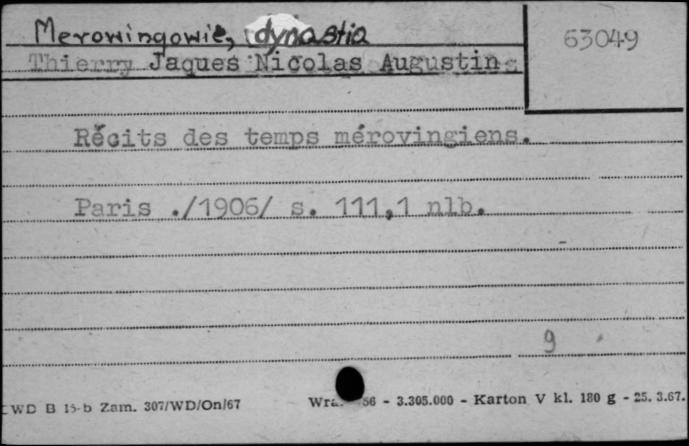 Merowingowie, dynastia
63049
Thierry Jaques Nicolas Augustin
Récits des temps mérovingiens.
Paris ./1906/ s. 111,1 nlb.
9
WD B 15-b Zam. 307/WD/On/67
56 - 3.305.000 - Karton V kl. 180 g - 25. 3.67.